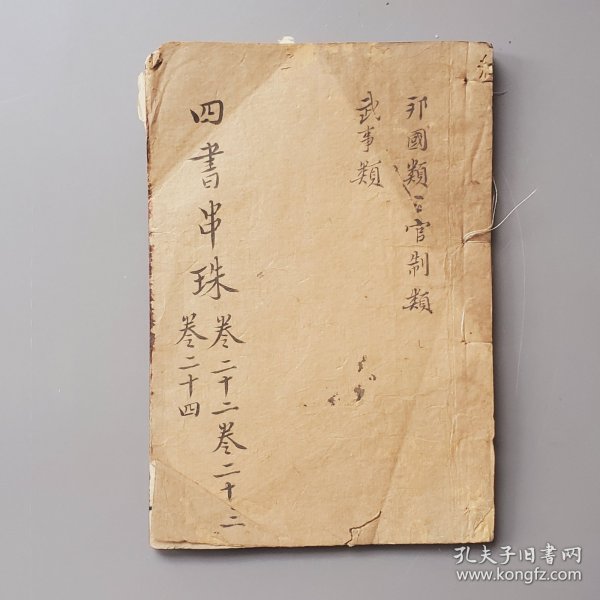 邦國類 官制類
武事類
四書串珠 卷二十二 卷二十三
卷二十四
孔夫子旧书网
www.kongfz.com